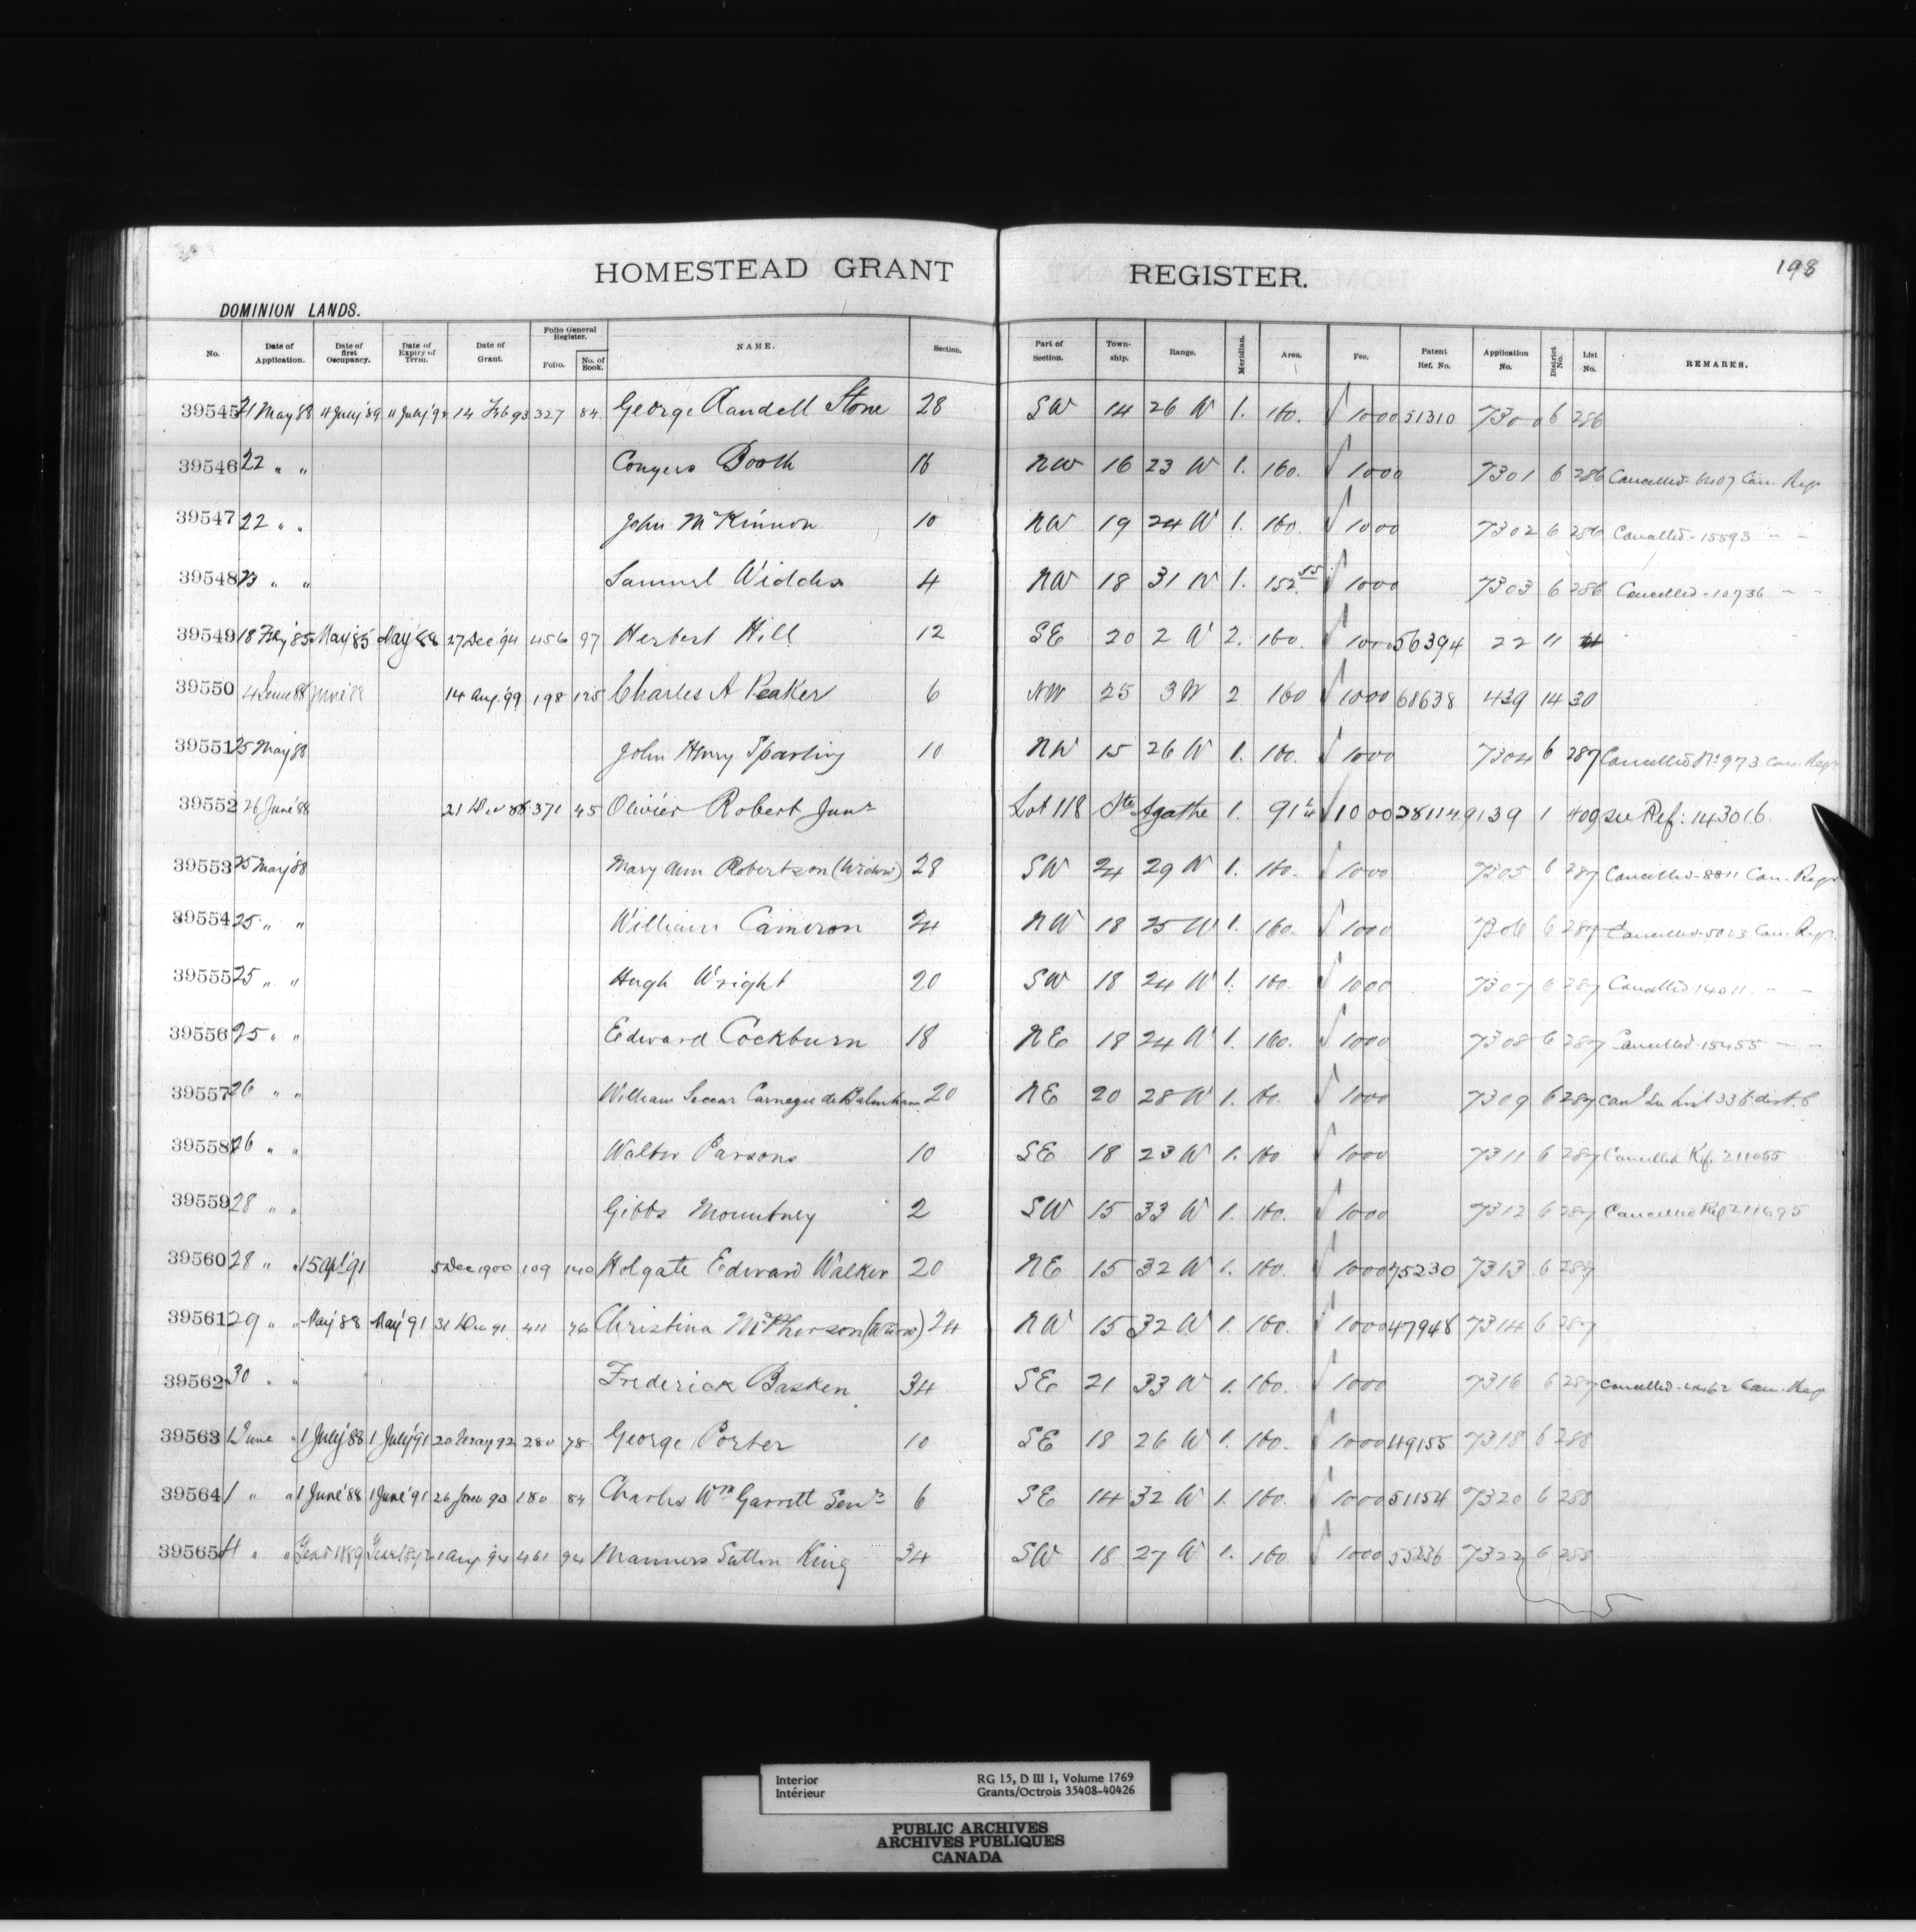 198
HOMESTEAD GRANT REGISTER.
DOMINION LANDS.
No. Date of Application. Date of first Occupancy. Date of Expiry of Term. Date of Grant. Folio General Register. Folio. No. of Book. NAME. Section. Part of Section. Township. Range. Meridian. Area. Fee. Patent Ref. No. Application No. District No. List No. REMARKS.
39545 21 May 88 11 July '89 11 July '92 14 Feb 93 327 84 George Randell Stone 28 SW 14 26 W 1. 160. √ 10 00 51310 7300 6 286
39546 22 " " Conyers Booth 16 NW 16 23 W 1. 160. √ 10 00 7301 6 286 Cancelled - 6407 Can. Regr
39547 22 " " John McKinnon 10 NW 19 24 W 1. 160. √ 10 00 7302 6 286 Cancelled - 15593 - -
39548 23 " " Samuel Widdis 4 NW 18 31 W 1. 152. √ 10 00 7303 6 286 Cancelled - 10736 - -
39549 18 Feby '85 May '85 May '88 27 Dec '94 456 97 Herbert Hill 12 SE 20 2 W 2. 160. √ 10 00 56394 22 11
39550 4 June 88 June '88 14 Aug. '99 198 125 Charles A Peaker 6 NW 25 3 W 2 160 √ 10 00 68638 439 14 30
39551 25 May '88 John Henry Sparling 10 NW 15 26 W 1. 160. √ 10 00 7304 6 287 Cancelled No 973 Can. Regr
39552 26 June '88 21 Dec 88 371 45 Olivier Robert Junr Lot 118 Ste Agathe 1. 91 √ 10 00 28114 9139 1 409 See Ref: 143016.
39553 25 May '88 Mary Ann Robertson (Widow) 28 SW 24 29 W 1. 160. √ 10 00 7305 6 287 Cancelled - 8811 Can. Regr
39554 25 " " William Cameron 24 NW 18 25 W 1. 160. √ 10 00 7306 6 287 Cancelled - 5023 Can. Regr.
39555 25 " " Hugh Wright 20 SW 18 24 W 1. 160. √ 10 00 7307 6 287 Cancelled 14011 - -
39556 25 " " Edward Cockburn 18 NE 18 24 W 1. 160. √ 10 00 7308 6 287 Cancelled - 15455 - -
39557 26 " " William Carnegie de Balinhard 20 NE 20 28 W 1. 160. √ 10 00 7309 6 287 List 336 dist. 6
39558 26 " " Walter Parsons 10 SE 18 23 W 1. 160 √ 10 00 7311 6 287 Cancelled Ref. 211055
39559 28 " " Gibbs Mountney 2 SW 15 33 W 1. 160. √ 10 00 7312 6 287 Cancelled Ref 211695
39560 28 " " 15 Apl '91 5 Dec 1900 109 140 Holgate Edward Walker 20 NE 15 32 W 1. 160. √ 10 00 75230 7313 6 287
39561 29 " " May '88 May '91 31 Dec 91 411 76 Christina McPherson (Widow) 24 NW 15 32 W 1. 160. √ 10 00 47948 7314 6 287
39562 30 " " Frederick Basken 34 SE 21 33 W 1. 160. √ 10 00 7316 6 287 Cancelled - Can. Regr
39563 1 June " 1 July '88 1 July '91 20 May 92 280 78 George Porter 10 SE 18 26 W 1. 160. √ 10 00 49155 7318 6 288
39564 1 " " 1 June '88 1 June '91 26 June 93 180 84 Charles Wm Garrett Senr 6 SE 14 32 W 1. 160. √ 10 00 51154 7320 6 288
39565 4 " " 1889 1 Aug '94 461 94 Manners Sutton King 34 SW 18 27 W 1. 160 √ 10 00 55236 7322 6 288
Interior
Intérieur
RG 15, D III 1, Volume 1769
Grants/Octrois 35408-40426
PUBLIC ARCHIVES
ARCHIVES PUBLIQUES
CANADA